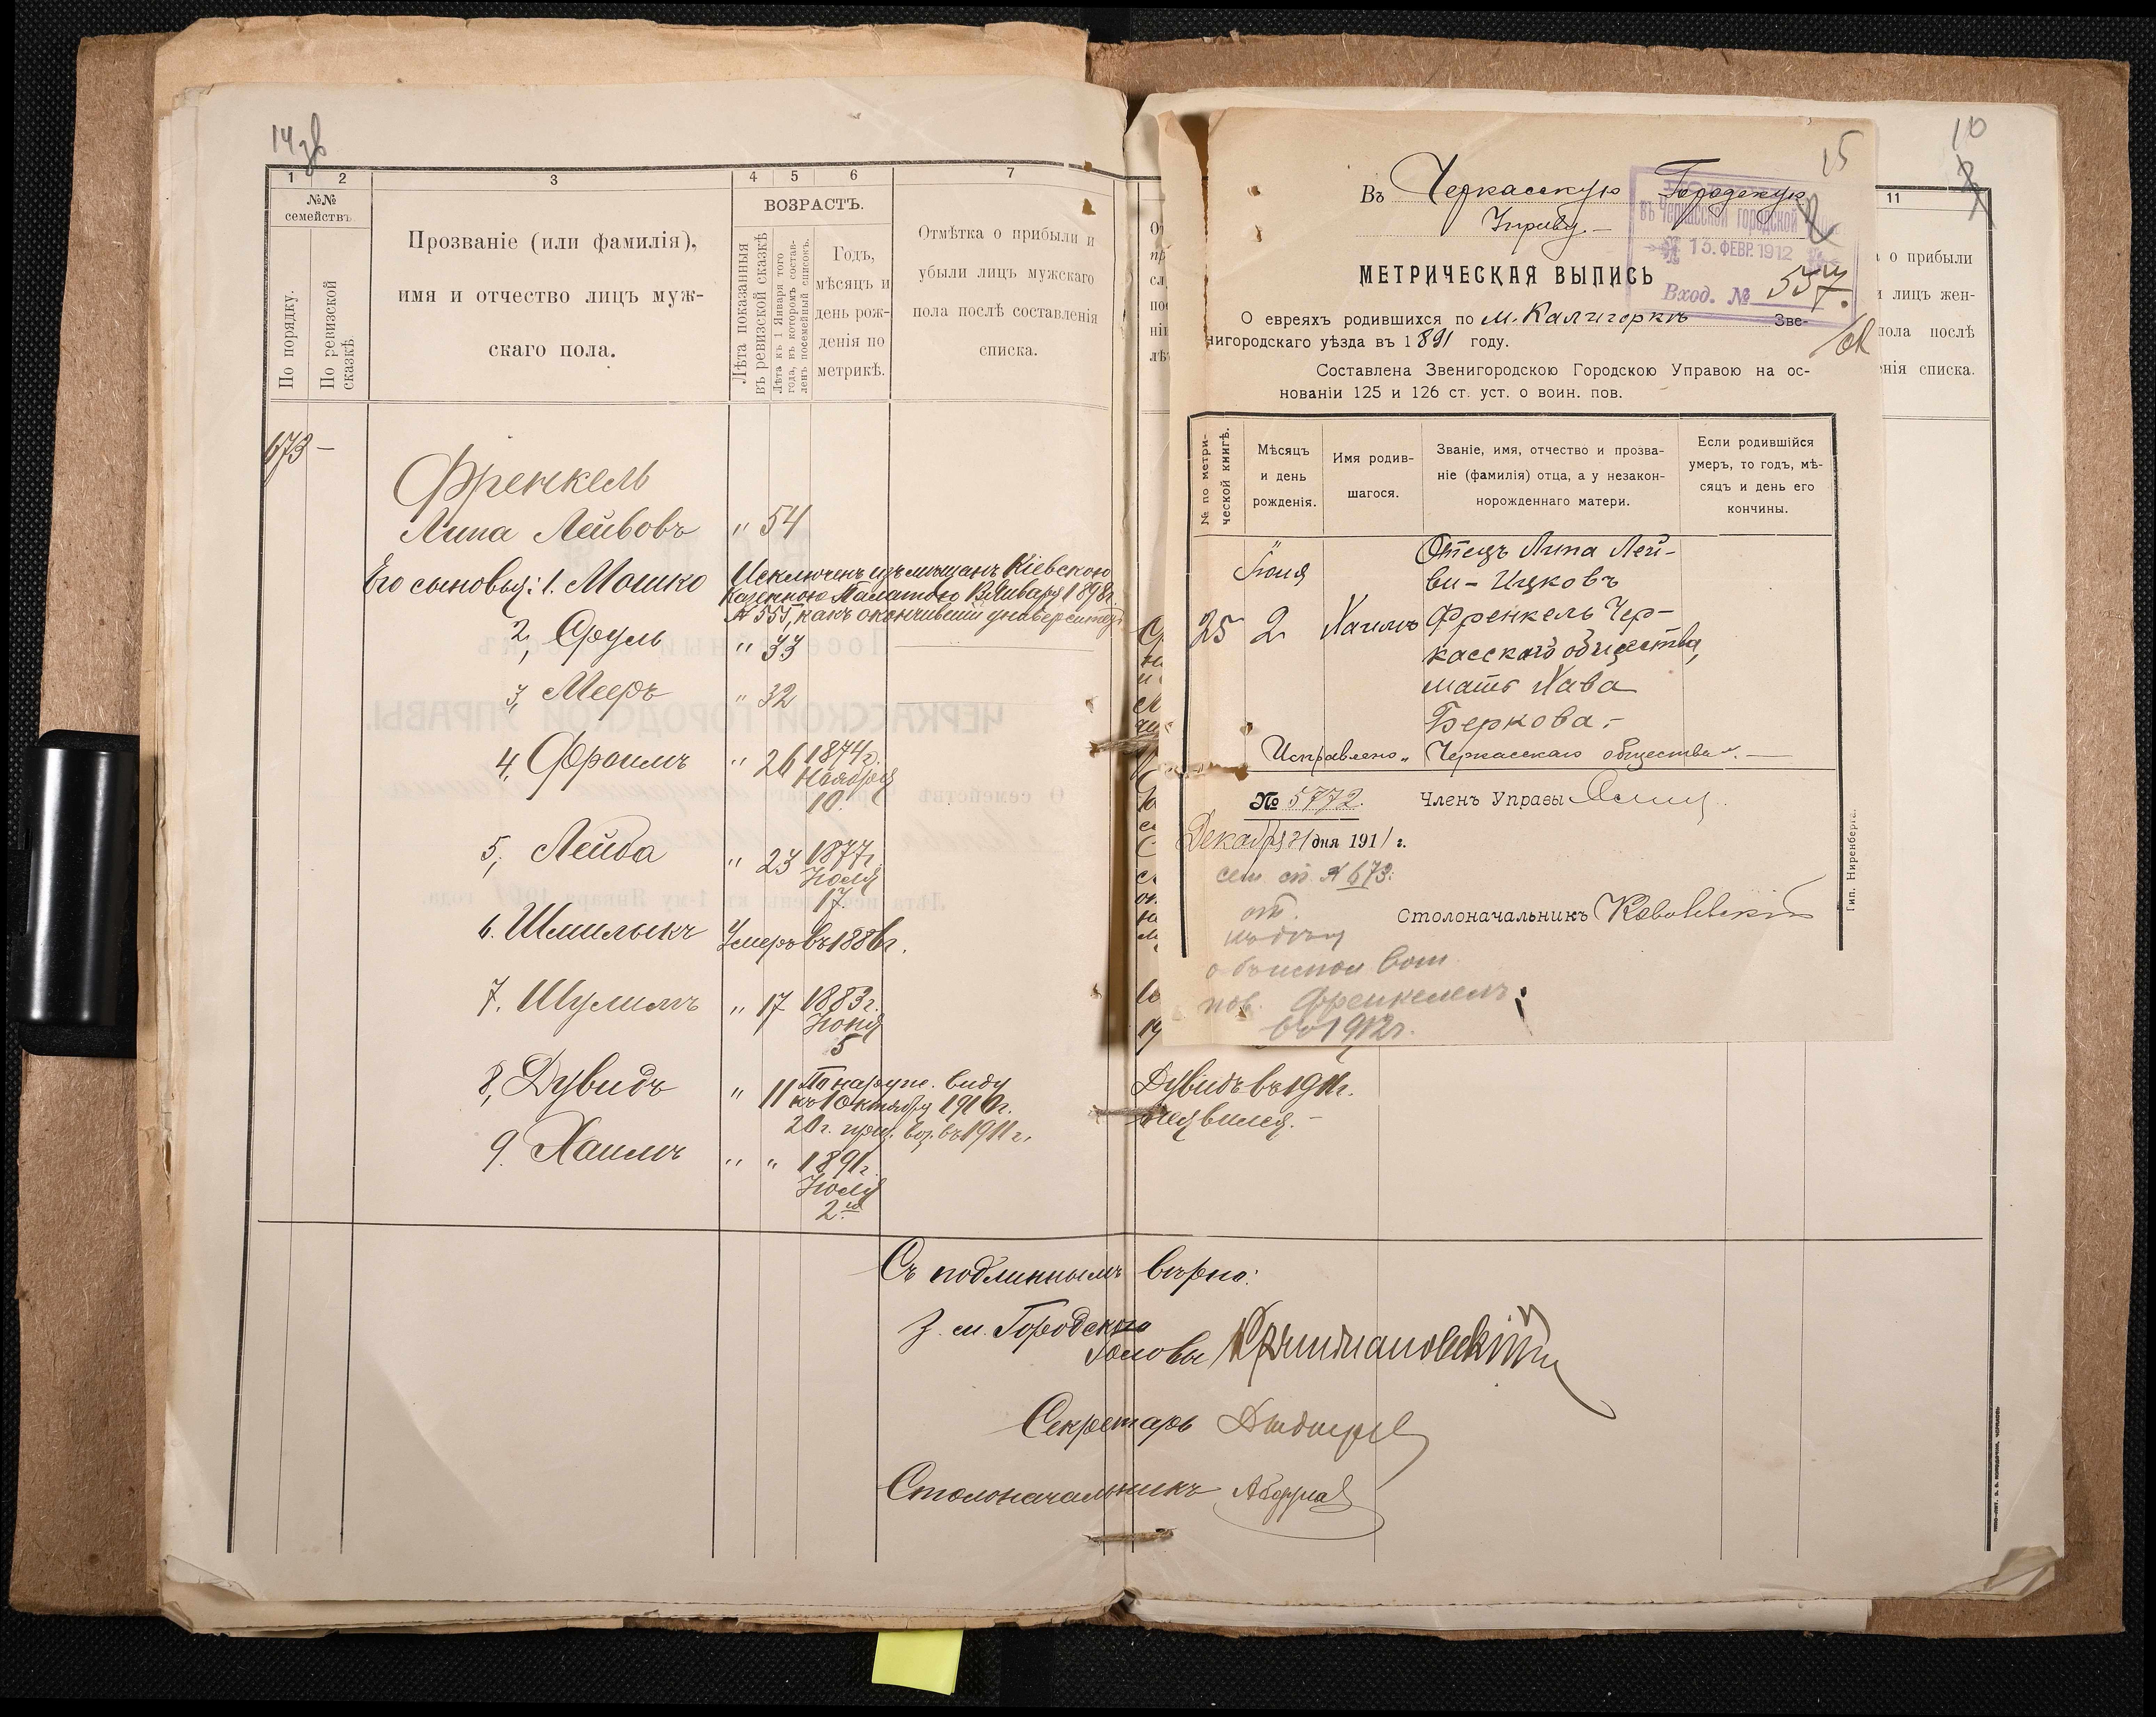 14 об
1 2 3 4 5 6 7
№№
семействъ.
По порядку.
По ревизской
сказкѣ.
Прозваніе (или фамилія),
имя и отчество лицъ муж-
скаго пола.
ВОЗРАСТЪ.
Лѣта показанныя
въ ревизской сказкѣ
Лѣта къ 1 Января того
года, въ которомъ состав-
ленъ посемейный списокъ.
Годъ,
мѣсяцъ и
день рож-
денія по
метрикѣ.
Отмѣтка о прибыли и
убыли лицъ мужскаго
пола послѣ составленія
списка.
673 —
Френкель
Липа Лейбовъ " 54
Его сыновья: 1. Мошко Исключенъ изъ мѣщанъ Кіевскою
Казенною Палатою Января 1898 г.
№ 555, какъ окончившій университ.
2, Сруль " 33
3, Мееръ " 32
4, Фроимъ " 26 1874 г.
Ноября
10.
5, Лейба " 23 1877 г.
Іюля
17.
6. Шмилыкъ Умеръ въ 1886 г.
7. Шулимъ " 17 1883 г.
Іюня
5
8, Дувидъ " 11 По наруж. виду
къ 1 Октября 1910 г.
20 г. приз. воз. въ 1911 г.
9. Хаимъ " " 1891 г.
Іюля
2го
Съ подлиннымъ вѣрно:
З. м. Городского
Головы
Секретарь
Столоначальникъ
10
15
Въ Черкасскую Городскую
Управу. —
въ Черкасской городской
15. ФЕВР. 1912
Вход. № 557.
МЕТРИЧЕСКАЯ ВЫПИСЬ
О евреяхъ родившихся по м. Калигоркѣ Зве-
нигородскаго уѣзда въ 1891 году.
Составлена Звенигородскою Городскою Управою на ос-
нованіи 125 и 126 ст. уст. о воин. пов.
№ по метри-
ческой книгѣ.
Мѣсяцъ
и день
рожденія.
Имя родив-
шагося.
Званіе, имя, отчество и прозва-
ніе (фамилія) отца, а у незакон-
норожденнаго матери.
Если родившійся
умеръ, то годъ, мѣ-
сяцъ и день его
кончины.
Іюля
25 2 Хаимъ
Отецъ Липа Лей-
би-Ицковъ
Френкель Чер-
касскаго общества,
мать Хава
Беркова. -
Исправлено „Черкасскаго общества". —
№ 5772. Членъ Управы
Декабря 21 дня 1911 г.
сем. сп. № 673.
Столоначальникъ
пов. Френкелемъ
въ 1912 г.
Тип. Ниренберга.
11
о прибыли
лицъ жен-
пола послѣ
енія списка.
Дувидъ въ 1911 г.
неявился. —